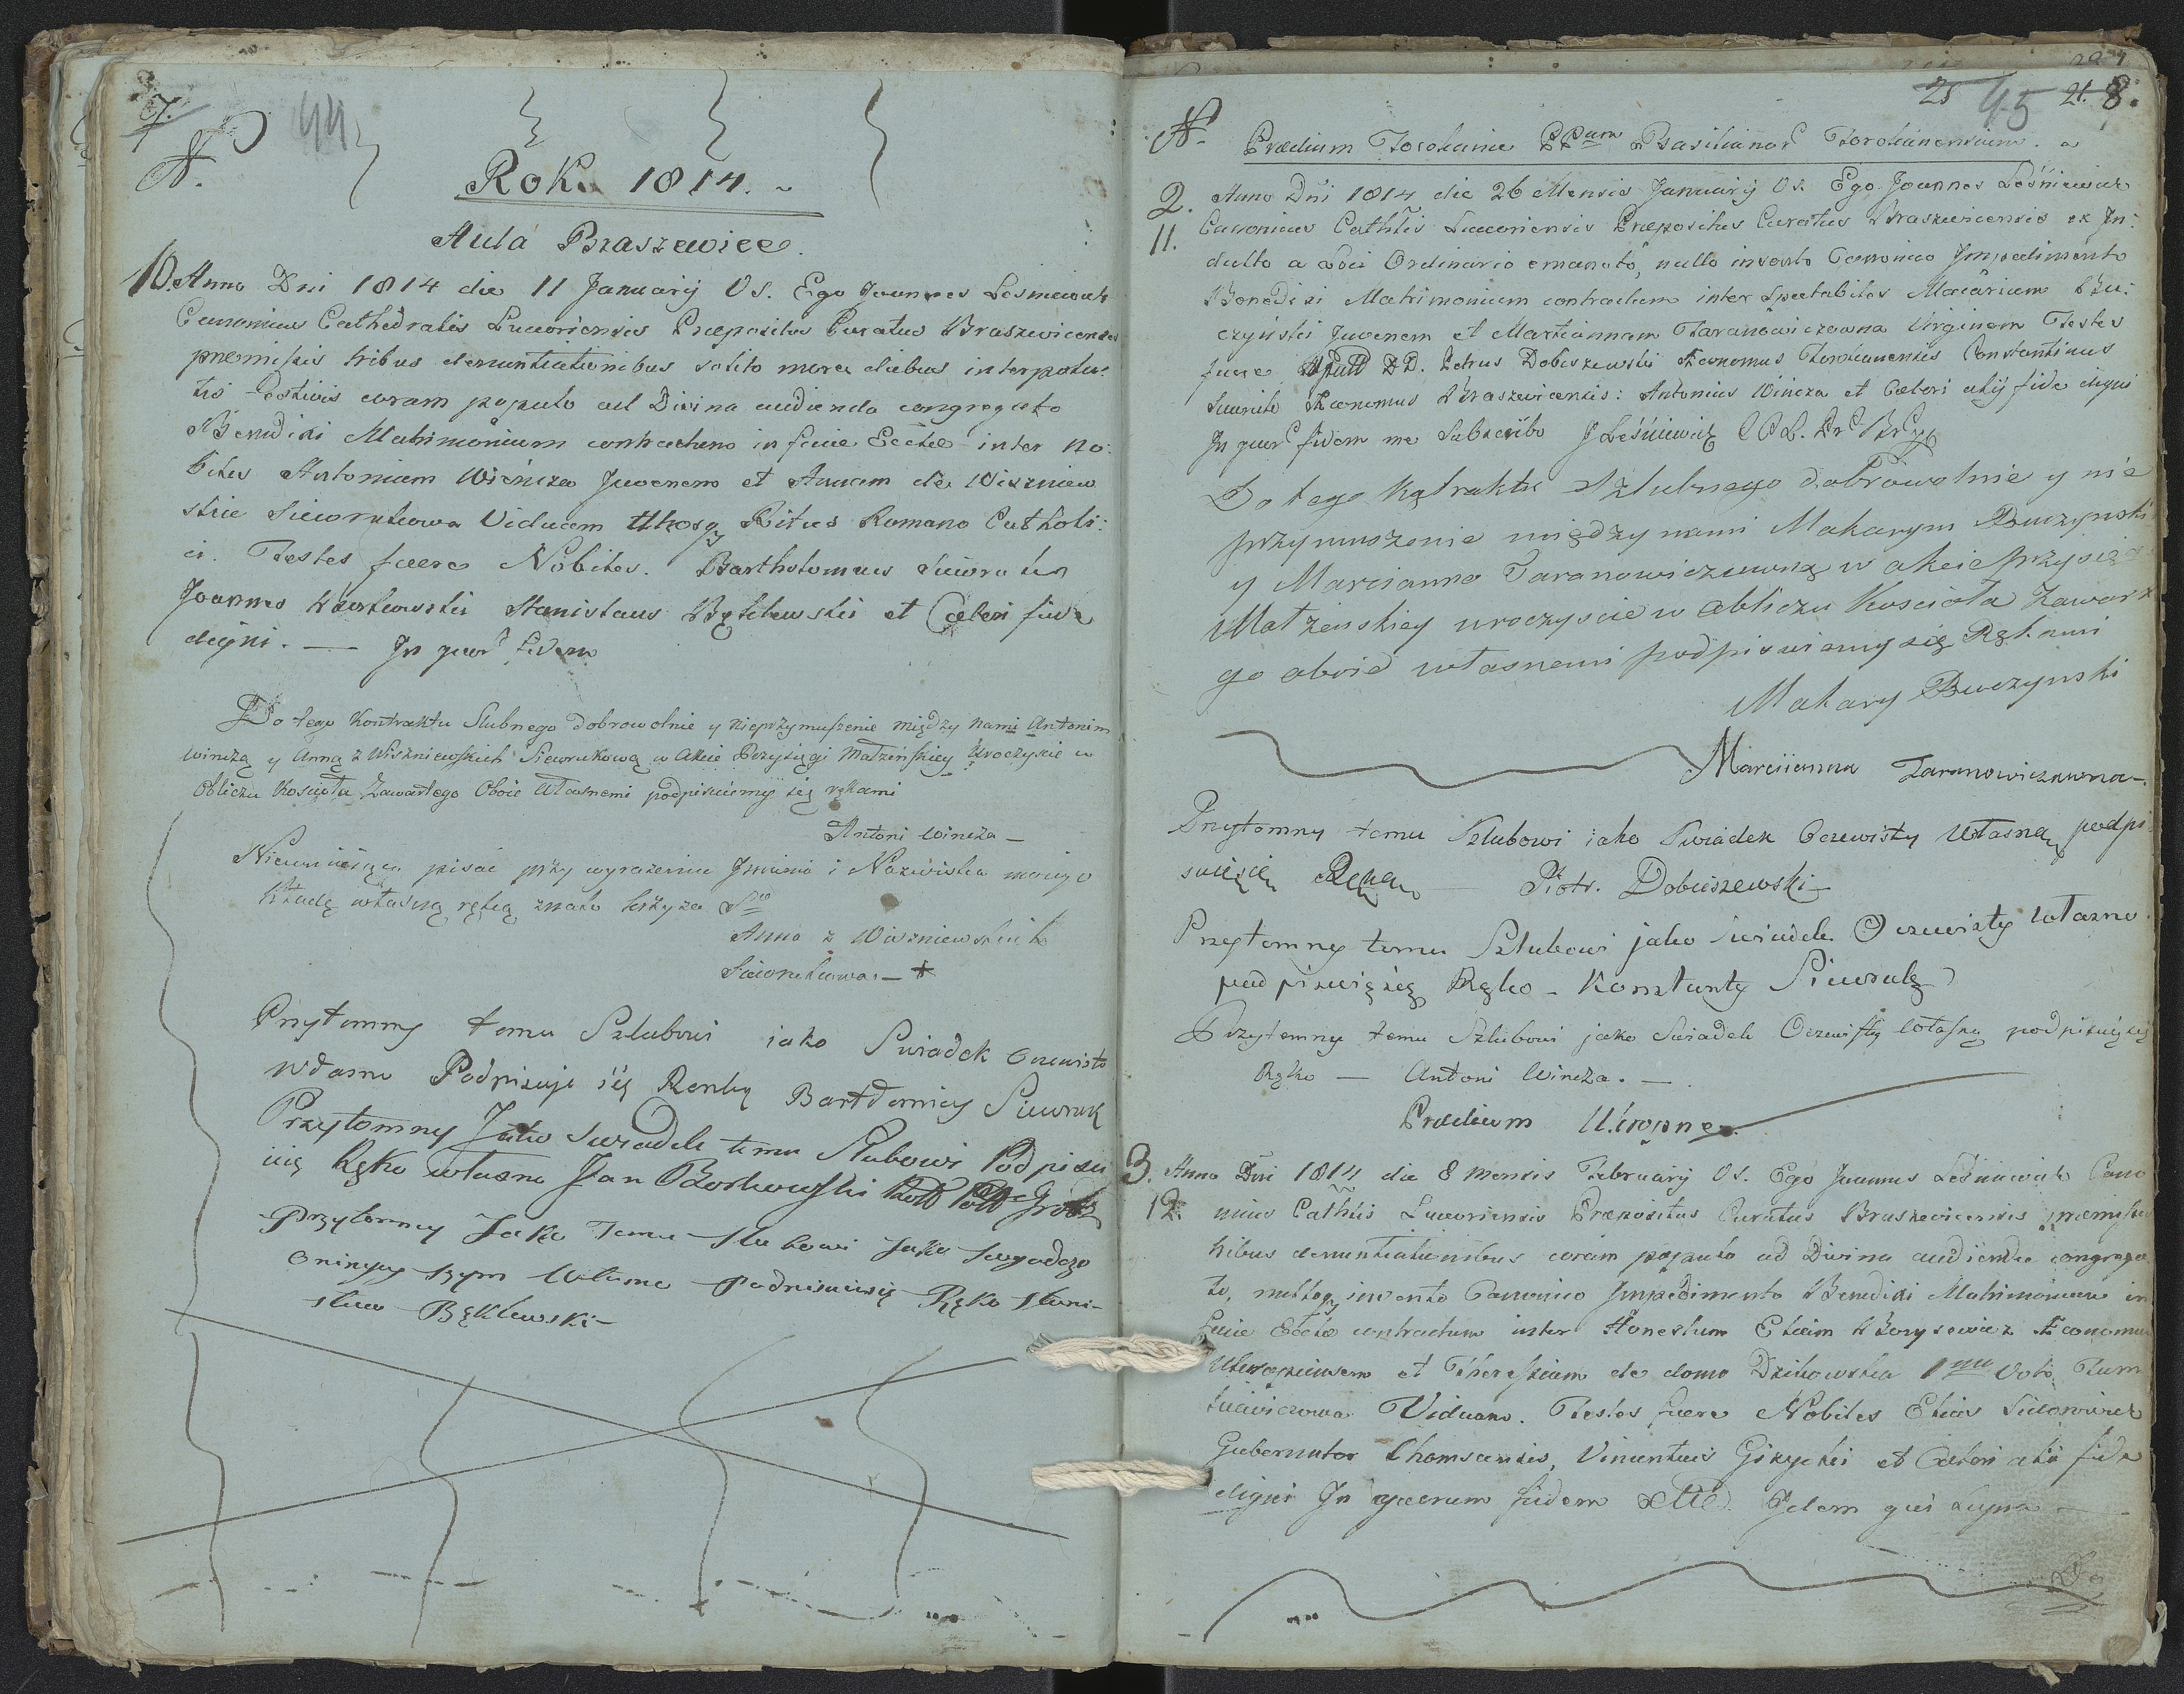 7.
44
N.
Roku 1814.
Aula Braszewice.
10. Anno Dni 1814 die 11 January VS. Ego Joannes Leśniewicz
Canonicus Cathedralis Luceoriensis Præpositus Curatus Braszewicensis
præmissis tribus denuntiationibus solito more diebus interpola-
tis Festivis coram populo ad Divina audienda congregato
Benedixi Matrimonium contractum in facie Eccłæ inter No-
biles Antonium Wincza Juvenem et Annam de Wiszniew
skie Siewrukowa Viduam Utrosq Ritus Romano Catholi:
ci. Testes fuere Nobiles. Bartholomeus Siewruk
Joannes Borkowski Stanislaus Bęklewski et Cæteri fide
digni. — In quor fidem
Do tego Kontraktu Slubnego dobrowolnie y nieprzymuszenie między nami Antonim
Winczą y Anną z Wiszniewskich Siewrukową w Akcie Przysięgi Małżeńskiey Uroczyście w
Obliczu Koscioła Zawartego Oboie Własnemi podpisuiemy się rękami
Antoni Wincza —
Nieumieiąca pisać przy wyrażeniu Jmienia i Nazwiska moiego
Kładę własną ręką znak krzyża Sgo
Anna z Wiszniewskich
Siewrukowa. — +
Przytomny temu Szlubowi jako Swiadek Oczewisto
własno Podpisuje się Renką Bartłomiey Siewruk
Przytomny Jako Swiadek temu Slubowi Podpisu
iię Ręko własno Jan Borkowski
Przytomny Jako Temu Slubowi Jako Swyadczo
oninym szym Własno Podpisuiesię Ręko Stani-
sław Bęklewski —
25 45 21. 8.
N. Prædium Torokanie PPum Basilianor Torokanensium.
2. Anno Dni 1814 die 26 Mensis January VS. Ego Joannes Leśniewicz
11. Canonicus Cathłis Luceoriensis Præpositus Curatus Braszewicensis ex In:
dulto a Loci Ordinario emanato, nullo invento Canonico Impedimento
Benedixi Matrimonium contractum inter Spectabiles Macarium Bu:
czyński Juvenem et Martiannam Taranowiczowna Virginem Testes
fuere DD. Petrus Dobiszewski Œconomus Torokanensis Constantinus
Siewruk Œconomus Braszewicensis: Antonius Wincza et Cæteri alij fide digni
In quor fidem me Subscribo J Leśniewicz
Do tego Kątraktu Szlubnego dobrowolnie y nie
przymuszenie między nami Makarym Buczynski
y Marcianno Taranowiczuwną w akcie przysięgi
Małżenskiey uroczyscie w obliczu Koscioła Zawart
go oboie własnemi podpisuiemy się Rękami
Makary Buczynski
Marciianna Taranowiczuwna —.
Przytomny temu Szlubowi iako Swiadek Oczewisty Własną podpi
suięsię Ręką — Piotr. Dobiszewski —
Przytomny temu Szlubowi jako Swiadek Oczewisty własno
podpisuięsię Ręko — Konstanty Siewruk
Przytomny temu Szlubowi jako Swiadek Oczewisty własną podpisuięsię
Ręko — Antoni Wincza. —
Prædium
3. Anno Dni 1814 die 8 mensis February VS. Ego Joannes Leśniewicz Cano
12. nicus Cathłis Luceoriensis Præpositus Curatus Braszewicensis præmissis
tribus denuntiationibus coram populo ad Divina audienda congrega
to, nulloq invento Canonico Impedimento Benedixi Matrimonium in
facie Eccłæ contractum inter Honestum Eliam Borysewicz Œconomum
et Theressiam de domo Dzikowska 1mo Voto
Viduam. Testes fuere Nobiles Elias
Gubernator Chomscensis, Vincentius Giżycki et Cæteri alii fide
digni In quorum fidem Idem qui supra —
Do